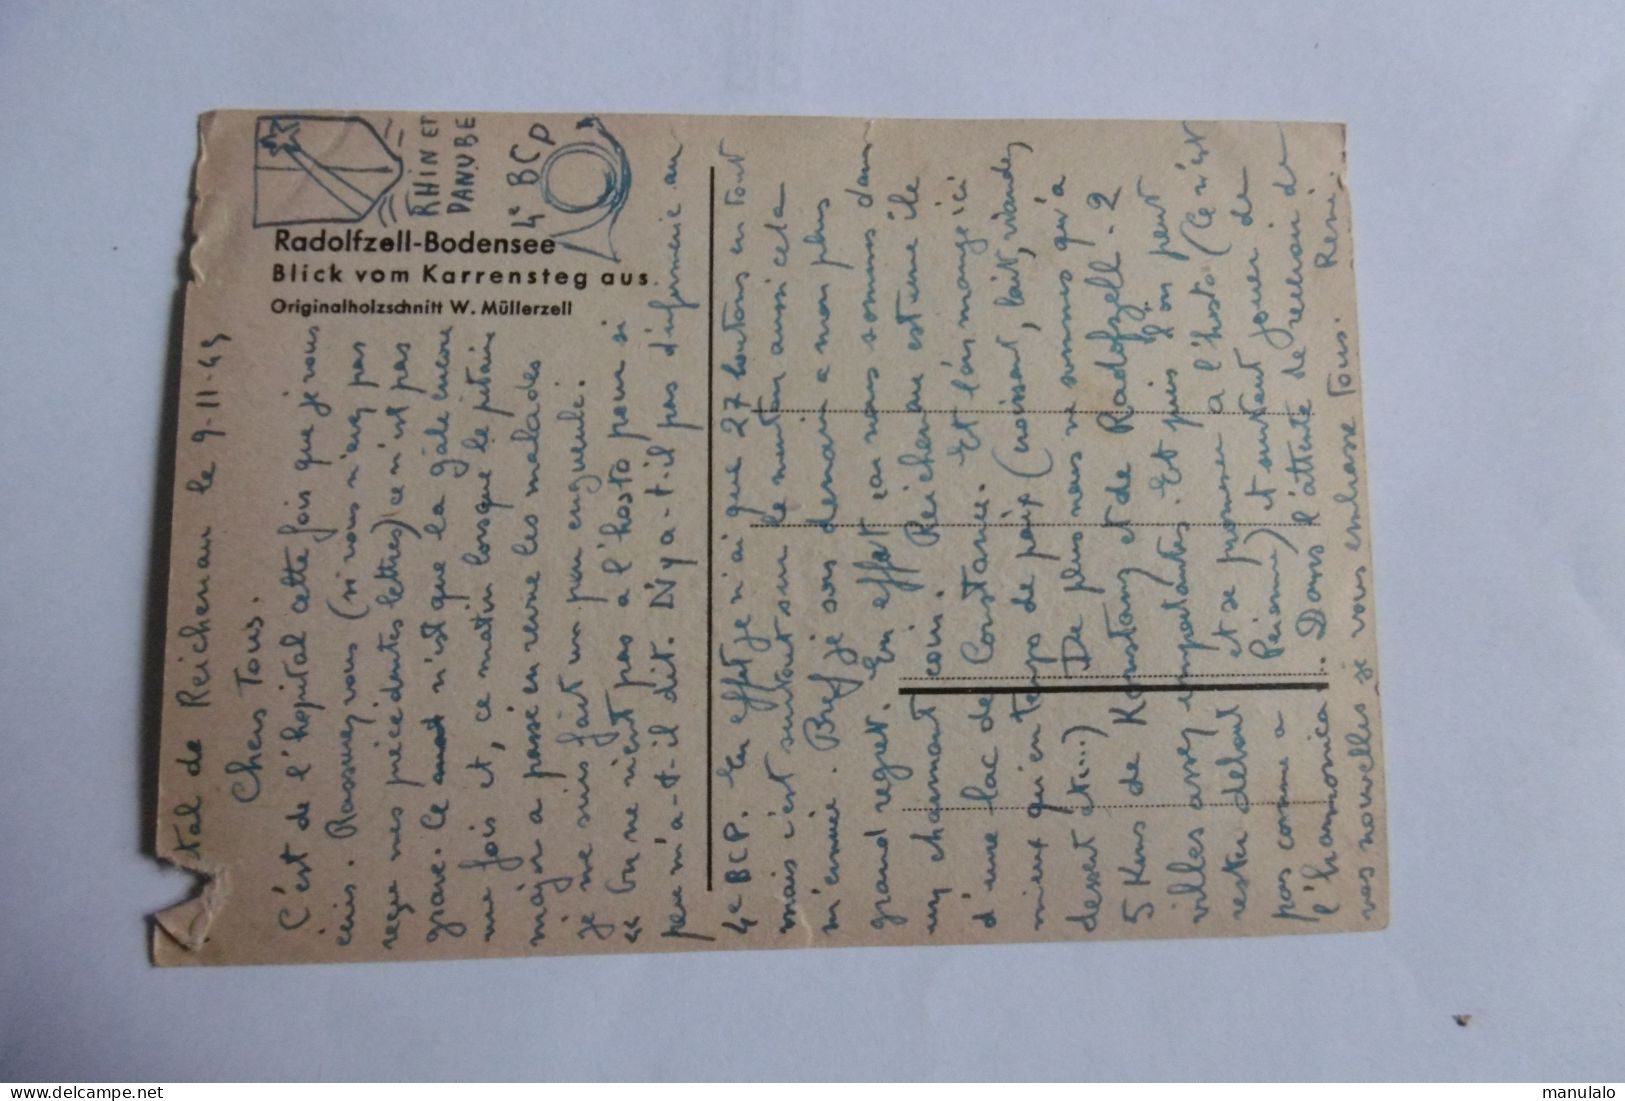 tal de Reichenau le 9-11-45
Chers Tous.
C'est de l'hôpital cette fois que je vous
écris. Rassurez vous (si vous n'avez pas
reçu mes précédentes lettres) ce n'est pas
grave. Ce n'est que la gâle encore
une fois et, ce matin lorsque le pitaine
major a passé en revue les malades
je me suis fait un peu engueulé.
"On ne vient pas à l'hosto pour si
peu m'a-t-il dit. N'y a-t-il pas d'infirmerie au
4e BCP. En effet je n'ai que 27 boutons en tout
mais c'est surtout sur le menton aussi cela
m'ennuie. Bref je sors demain à mon plus
grand regret. En effet car nous sommes dans
un charmant coin. Reichenau est une île
d'une lac de Constance. Et l'on mange ici
mieux qu'en temps de paix (croissant, lait, viandes,
dessert etc...) De plus nous ne sommes qu'à
5 Kms de Konstanz et de Radofzell. 2
villes assez importantes. Et puis l'on peut
rester debout et se promener à l'hosto (Ce n'est
pas comme à Péronne) et surtout jouer de
l'harmonica. Dans l'attente de recevoir de
vos nouvelles je vous embrasse Tous. René.
RHIN ET
DANUBE
4e BCP
Radolfzell-Bodensee
Blick vom Karrensteg aus
Originalholzschnitt W. Müllerzell
www.delcampe.net
manulalo